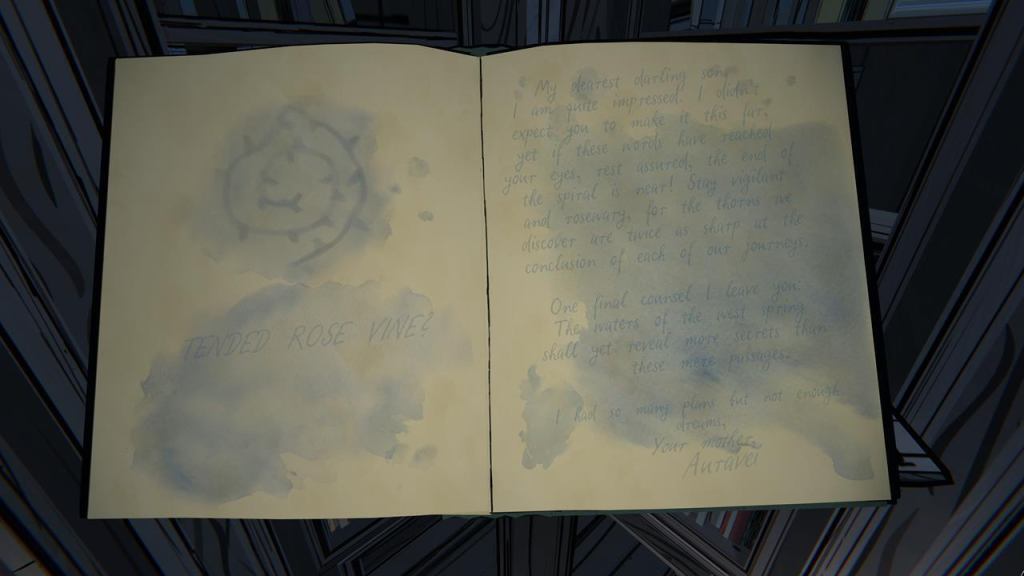 TENDED ROSE VINE?
My dearest darling son,
I am quite impressed. I didn't
expect you to make it this far,
yet if these words have reached
your eyes, rest assured, the end of
the spiral is near! Stay vigilant
and rosewary, for the thorns we
discover are twice as sharp at the
conclusion of each of our journeys.
One final counsel I leave you:
The waters of the west spring
shall yet reveal more secrets than
these mere passages.
I had so many plans but not enough
dreams,
Your mother,
Auravei